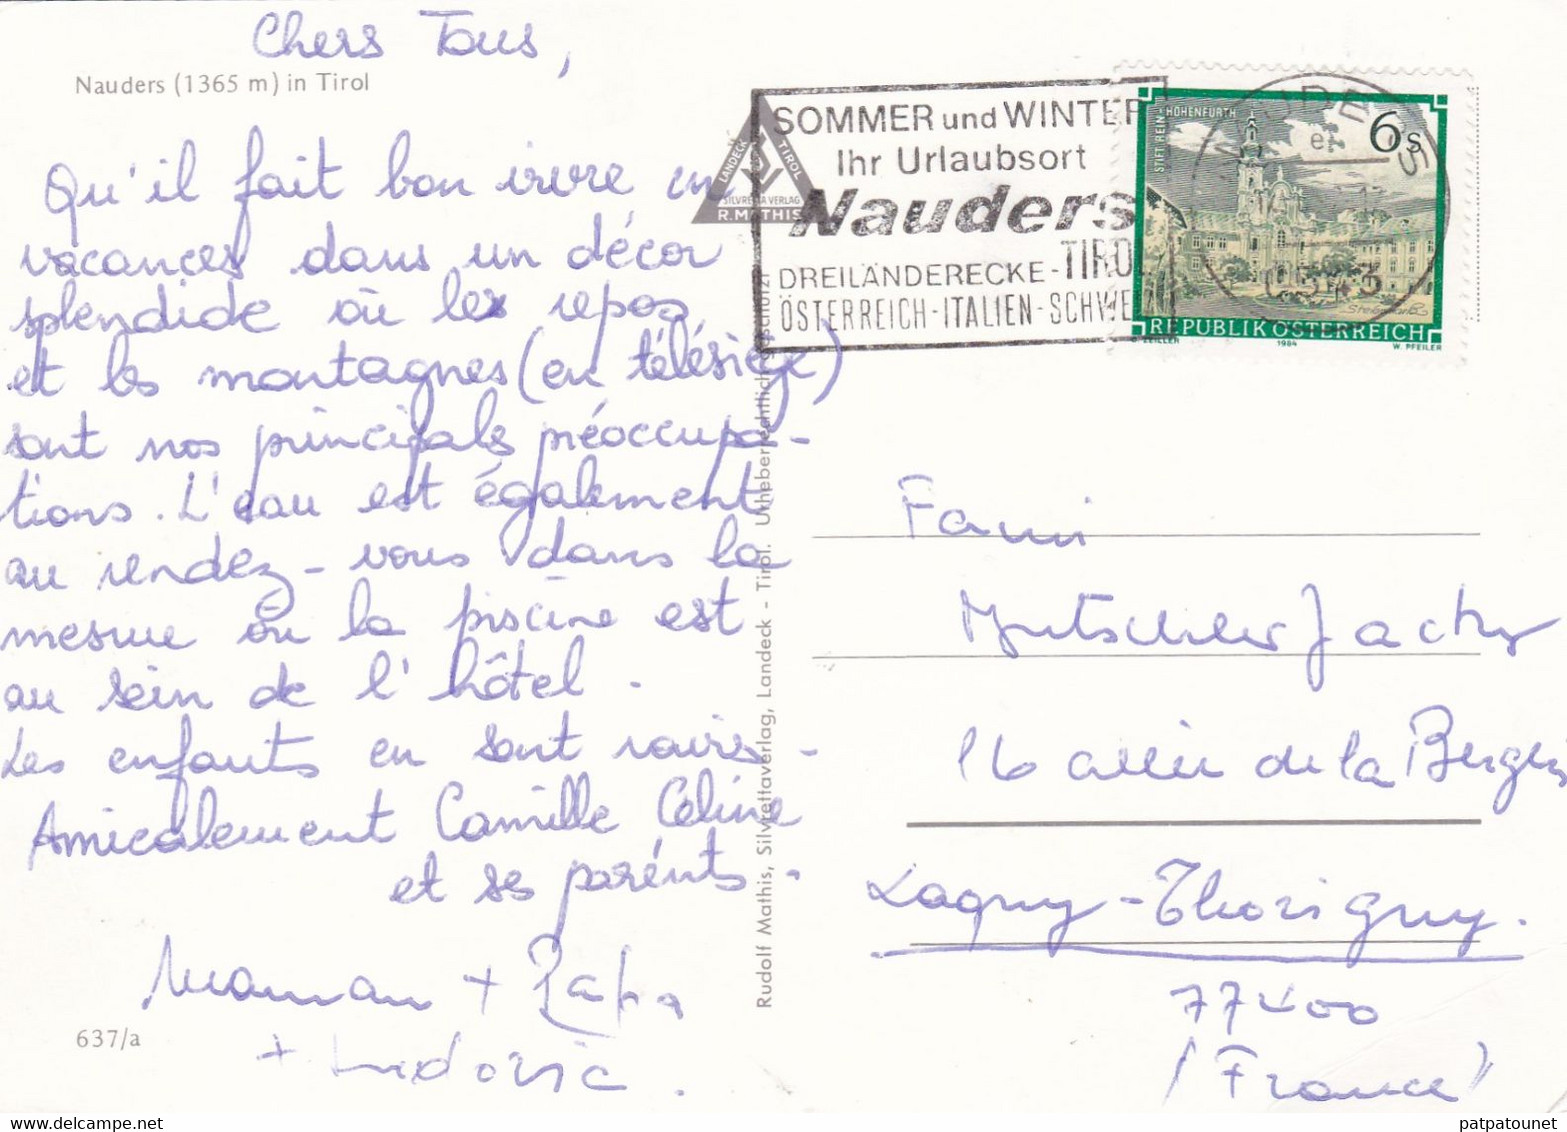 Chers Tous,
Nauders (1365 m) in Tirol
Qu'il fait bon vivre en
vacances dans un décor
splendide où les repos
et les montagnes (en télésiège)
sont nos principals préoccupa-
tions. L'eau est également
au rendez-vous dans la
mesure où la piscine est
au sein de l'hôtel.
Les enfants en sont ravis.
Amicalement Camille Céline
et ses parents.
Maman + Papa
+ Ludovic.
637/a
Rudolf Mathis, Silvrettaverlag, Landeck - Tirol. Urheberrechtlich geschützt
LANDECK TIROL
SILVRETTA VERLAG
R. MATHIS
SOMMER und WINTER
Ihr Urlaubsort
Nauders
DREILÄNDERECKE-TIROL
ÖSTERREICH-ITALIEN-SCHWEIZ
STIFT REIN-HOHENFURTH
6 s
REPUBLIK ÖSTERREICH
O. ZEILLER 1984 W. PFEILER
Fami
Mutschler Jacky
16 allée de la Berge
Lagny-Thorigny.
77400
(France)
patpatounet